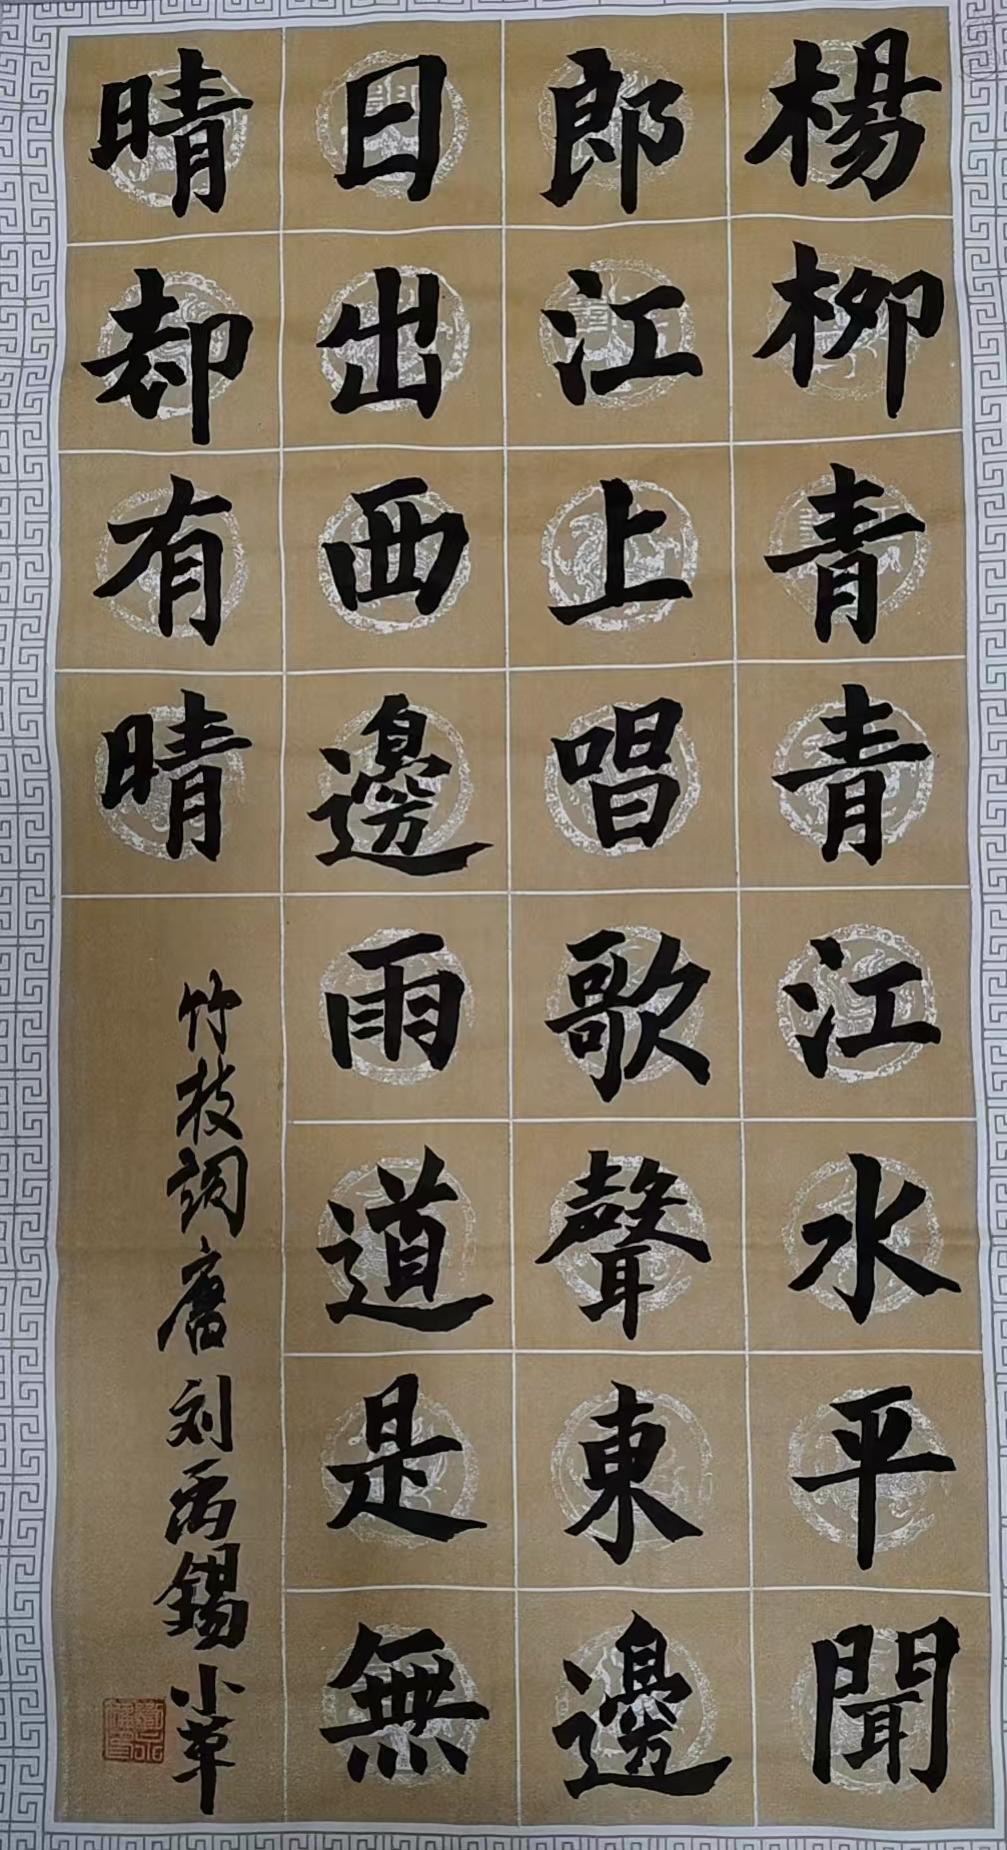 楊柳青青江水平聞
郎江上唱歌聲東邊
日出西邊雨道是無
晴却有晴
竹枝詞唐刘禹錫小革